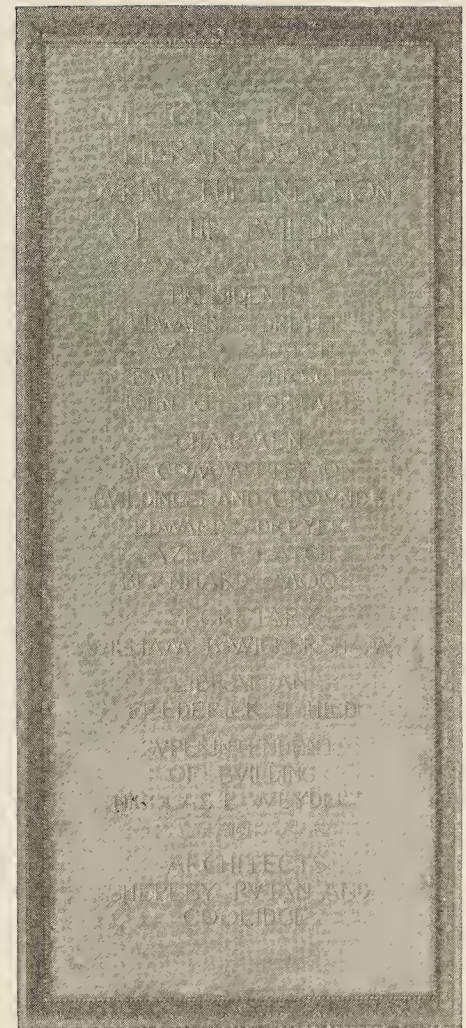 OFFICERS OF THE
LIBRARY BOARD
DVRING THE ERECTION
OF THIS BVILDING
PRESIDENTS
EDWARD S DREYER
AZEL F HATCH
CHAIRMEN
OF COMMITTEE ON
BVILDINGS AND GROVNDS
EDWARD S DREYER
AZEL F HATCH
BERNHARD MOOS
SECRETARY
WILLIAM B WICKERSHAM
LIBRARIAN
FREDERICK H HILD
SVPERINTENDENT
OF BVILDING
ARCHITECTS
SHEPLEY RVTAN AND
COOLIDGE